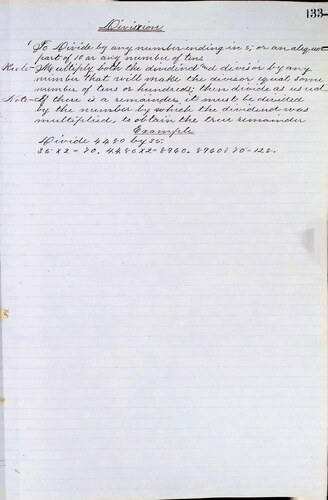 133
Division
1 To Divide by any number ending in 5; or an aliquot
part of 10 or any number of tens
Rule - Multiply both the dividend and divisor by any
number that will make the divisor equal some
number of tens or hundreds; then divide as usual
Note - If there is a remainder, it must be divided
by the number by which the dividend was
multiplied, to obtain the true remainder
Example
Divide 4480 by 35.
35 x 2 = 70. 4480 x 2 = 8960. 8960 ÷ 70 = 128.